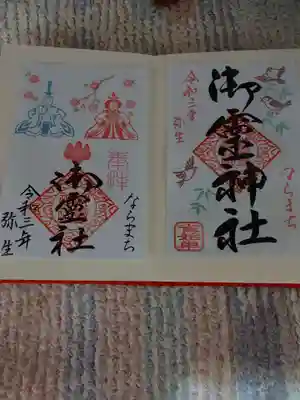 令和三年
弥生
御霊神社
ならまち
奉拝
御霊社
ならまち
令和三年
弥生